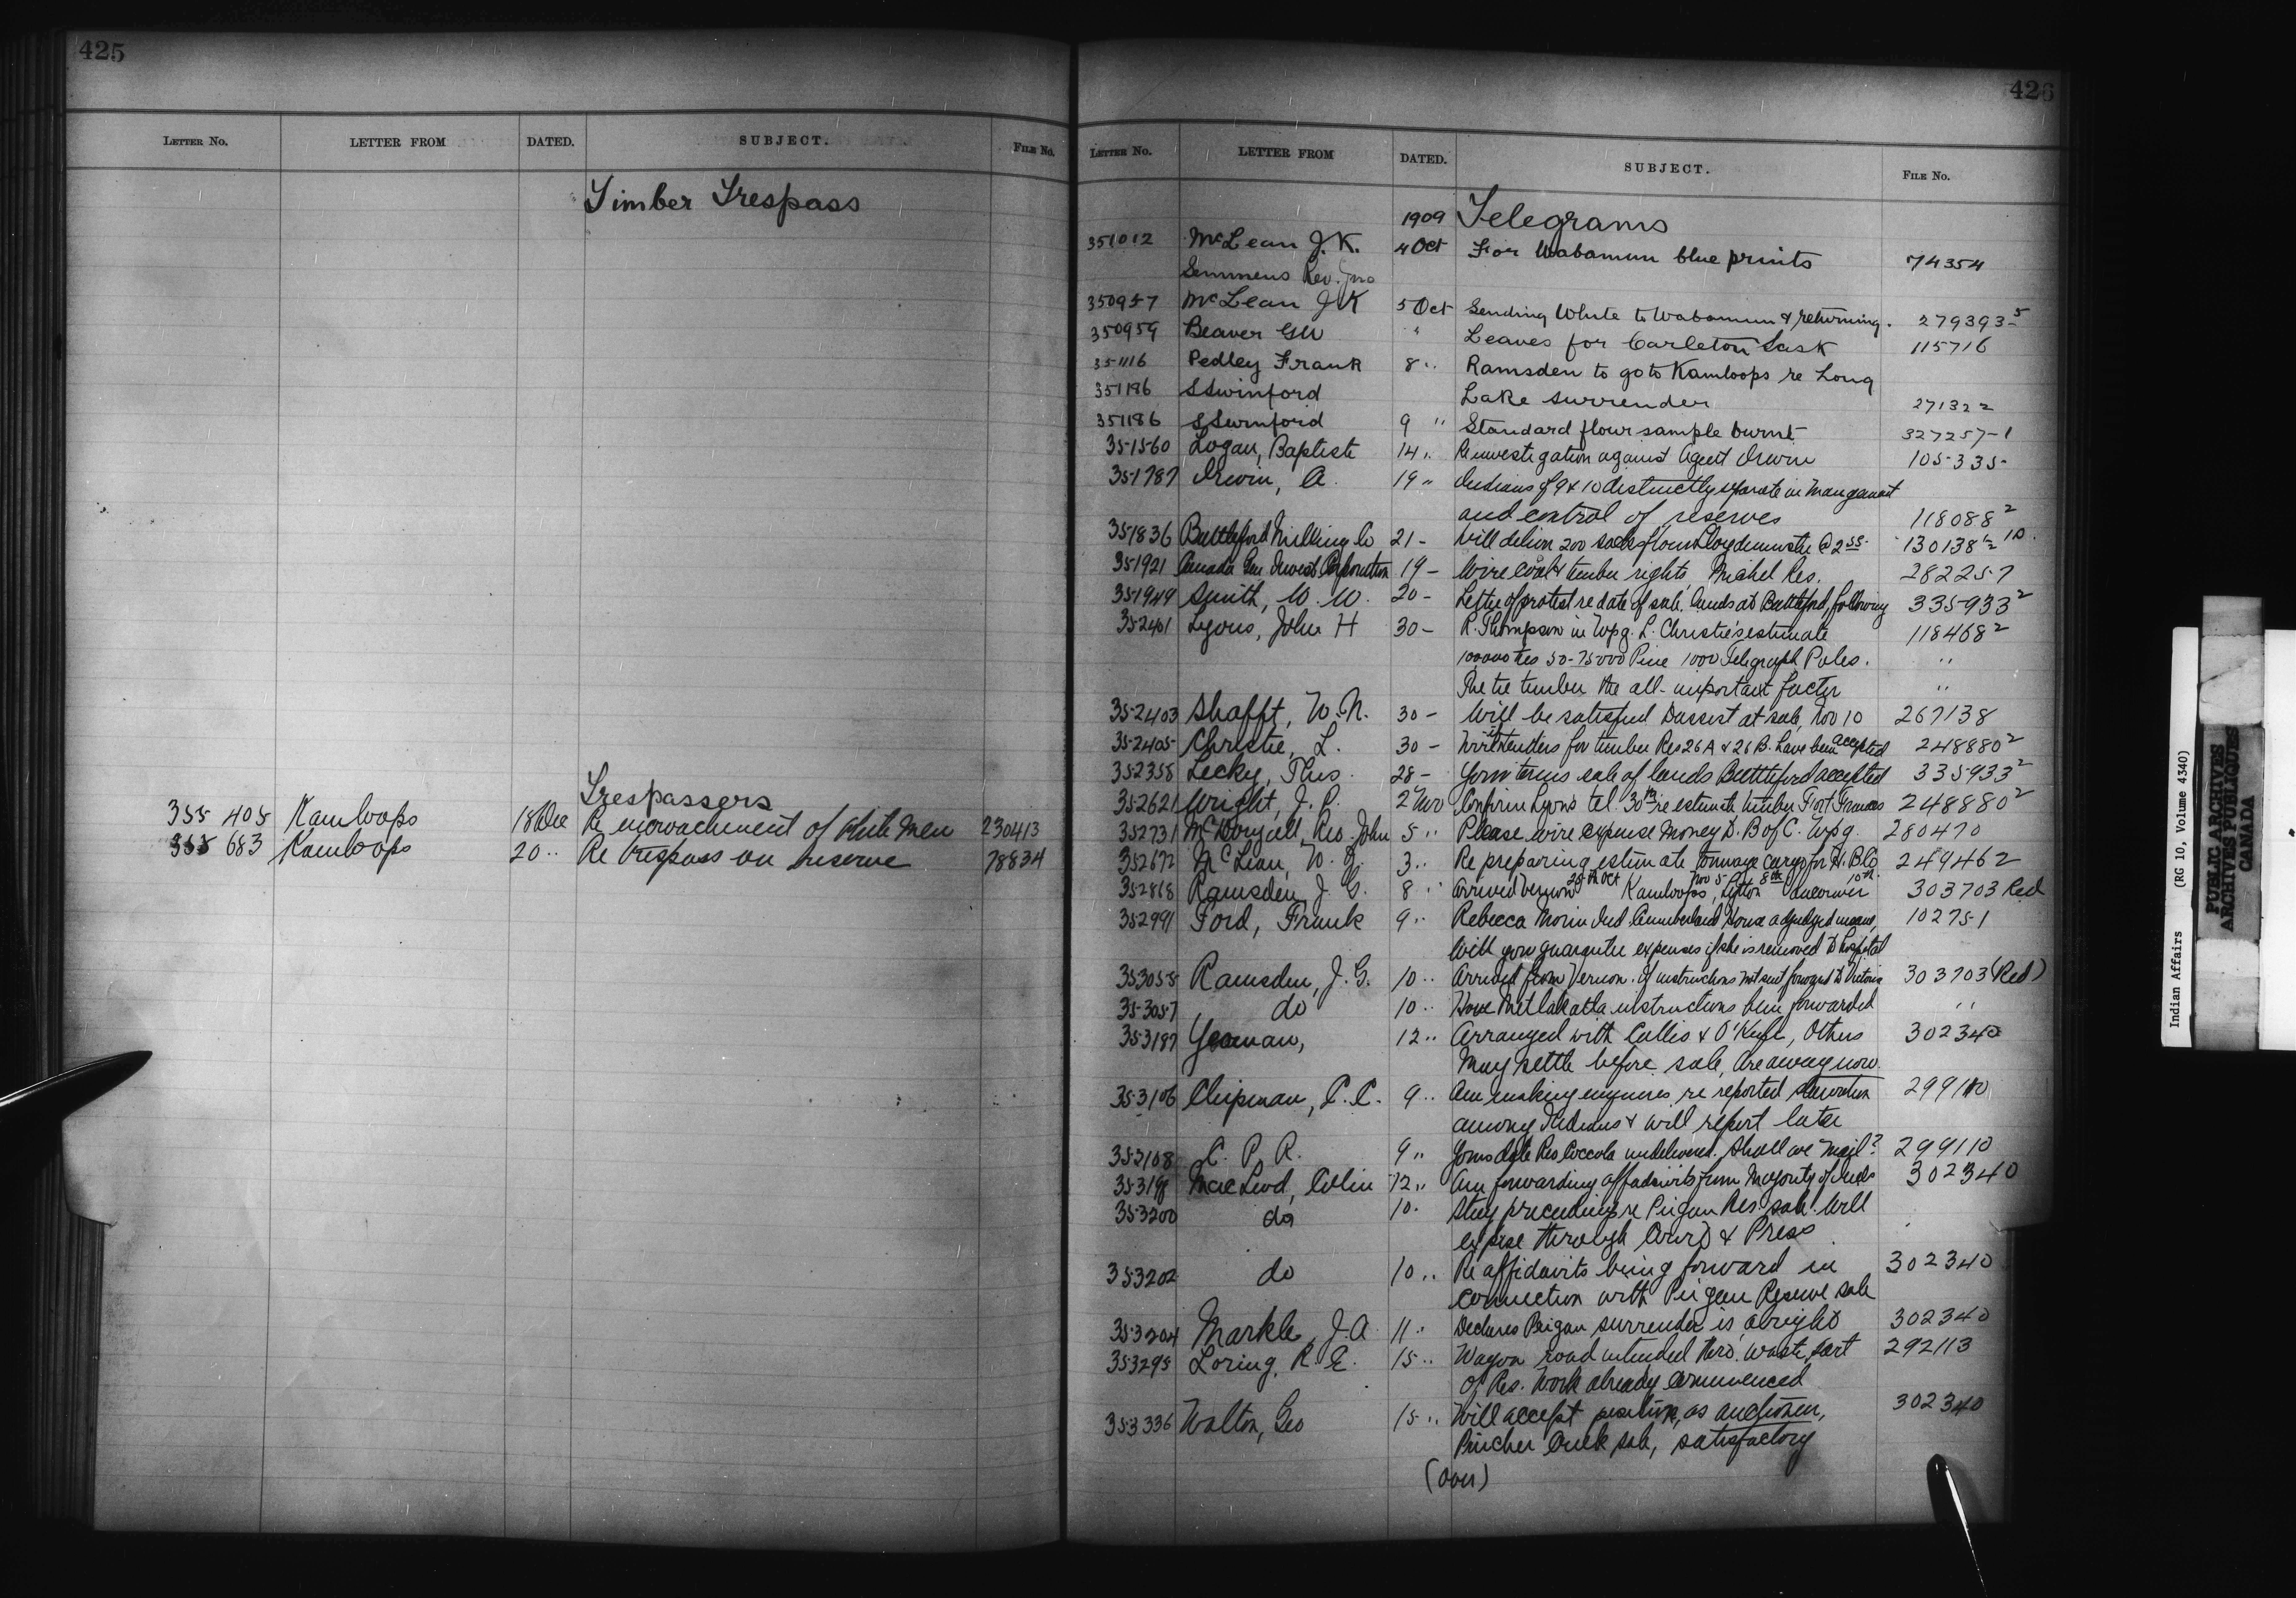 425
LETTER No. LETTER FROM DATED. SUBJECT. FILE No.
Timber Trespass
Trespassers
355 405 Kamloops 18 Dec Re encroachment of white men 230413
355 683 Kamloops 20 " Re trespass on reserve 78834
426
LETTER No. LETTER FROM DATED. SUBJECT. FILE No.
1909 Telegrams
351012 McLean J.K. 4 Oct For Wabamun blue prints 74354
Semmens Rev. Jno
350957 McLean J K 5 Oct Sending White to Wabamun & returning. 279393-5
350959 Beaver GW " Leaves for Carleton Sask 115716
351116 Pedley Frank 8 " Ramsden to go to Kamloops re Long
351186 S Swinford Lake surrender 271322
351186 S Swinford 9 " Standard flour sample burnt 327257-1
351560 Logan, Baptiste 14 " Re investigation against Agent Irwin 105335
351787 Irwin, A. 19 " Indians of 9 & 10 distinctly separate in management
and control of reserves 118088 2
351836 Battleford Milling Co 21 - Will deliver 200 sacks flour Lloydminster @ 2 55 130138 10
351921 Canada Gen Invest Corporation 19 - Wire coal & timber rights, Michel Res. 282257
351949 Smith, W. W. 20 - Letter of protest re date of sale, lands at Battleford, following 335933 2
352401 Lyons, John H 30 - R. Thompson in Wpg. L. Christie's estimate 118468 2
100000 ties 50-75000 Pine 1000 Telegraph Poles. "
The tie timber the all-important factor "
352403 Shafft, W. N. 30 - Will be satisfied to assist at sale, Nov 10 267138
352405 Christie, L. 30 - Wire if tenders for timber Res 26A & 26B. have been accepted 248880 2
352358 Lecky, Thos. 28 - Your terms sale of lands Battleford accepted 335933 2
352621 Wright, J. P. 2 Nov Confirm Lyons tel. 30th re estimate timber Fort Frances 248880 2
352731 McDougall, Rev. John 5 " Please wire expense money D. B of C. Wpg. 280470
352672 McLean, W. J. 3 " Re preparing estimate tonnage cargo for H. B. Co 249462
352868 Ramsden, J. G. 8 " Arrived Vernon 28th Oct Kamloops Nov 5, Lytton 8th Vancouver 10th. 303703 Red
352991 Ford, Frank 9 " Rebecca Morin Ind Cumberland House adjudged insane, 102751
Will you guarantee expenses if she is removed to hospital
353055 Ramsden, J. G. 10 " Arrived from Vernon. If instructions not sent forward to Victoria 303703 (Red)
353057 do 10 " Have Metlakatla instructions been forwarded "
353187 Yeoman, 12 " Arranged with Collis & O'Keefe, Others 302340
May settle before sale, are away now.
353106 Chipman, C. C. 9 " Am making enquiries re reported starvation 299110
among Indians & will report later
353108 C. P. R. 9 " Yours date Rev Coccola undelivered. Shall we mail? 299110
353198 MacLeod, Colin 12 " Am forwarding affadavits from majority of Inds 302340
353200 do 10 " Stay proceedings re Piegan Res. sale. Will
expose through Court & Press
353202 do 10 " Re affidavits being forward in 302340
connection with Piegan Reserve sale
353204 Markle, J. A. 11 " Declares Peigan surrender is alright 302340
353295 Loring, R. E. 15 " Wagon road intended thro. waste part 292113
of Res. Work already commenced
353336 Walton, Geo 15 " Will accept position, as auctioneer, 302340
Pincher Creek sale, satisfactory
(Over)
Indian Affairs (RG 10, Volume 4340)
PUBLIC ARCHIVES
ARCHIVES PUBLIQUES
CANADA